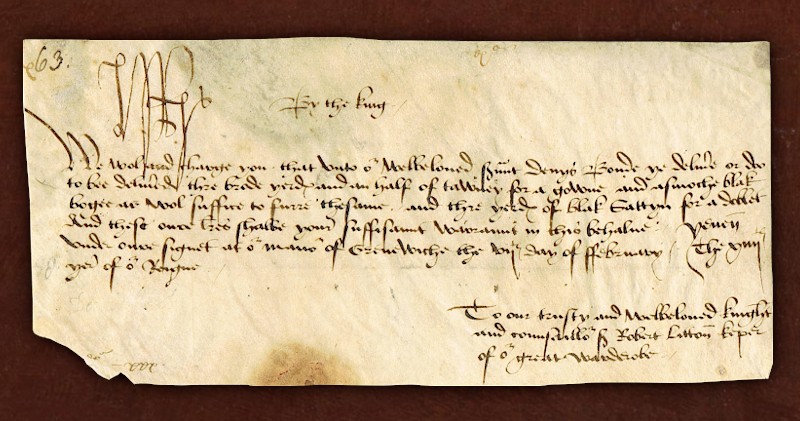 63.
By the king
We wol and charge you that unto oʳ Welbeloved sʳunt Denys Bonde ye delivʳe or doo
to bee delivʳed thre brode yerdꝭ and an half of tawney for a gowne and asmoche blak
bogee as wol suffice to furre thesame. and thre yerdꝭ of blak Sattyn for a doblet
And these oure lrēs shalbe youʳ suffisaunt Warannt in this behalue. yeuen
under oure signet at oʳ manoʳ of Grenewiche the vij day of ffebruary The xiiij
yeʳ of oʳ Reigne
To our trusty and welbeloved knight
and counsailloʳ sʳ Robert Litton keper
of oʳ great Warderobe